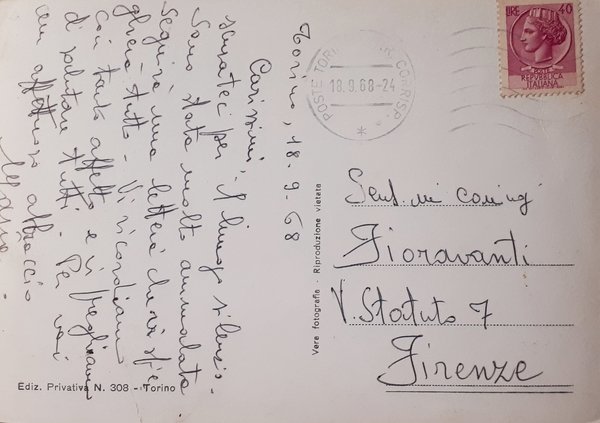 Torino, 18-9-68
Carissimi,
scusateci per il lungo silenzio.
Sono stata molto ammalata
Seguirà una lettera che vi spie
gherà tutto - Vi ricordiamo
con tanto affetto e vi preghiamo
di salutare tutti. Per voi
un affettuoso abbraccio
POSTE TORINO CORRISP
18.9.68-24
LIRE 40
POSTE
REPUBBLICA
ITALIANA
Gent. mi coniugi
Fioravanti
V. Statuto 7
Firenze
Vera fotografia - Riproduzione vietata
Ediz. Privativa N. 308 - Torino